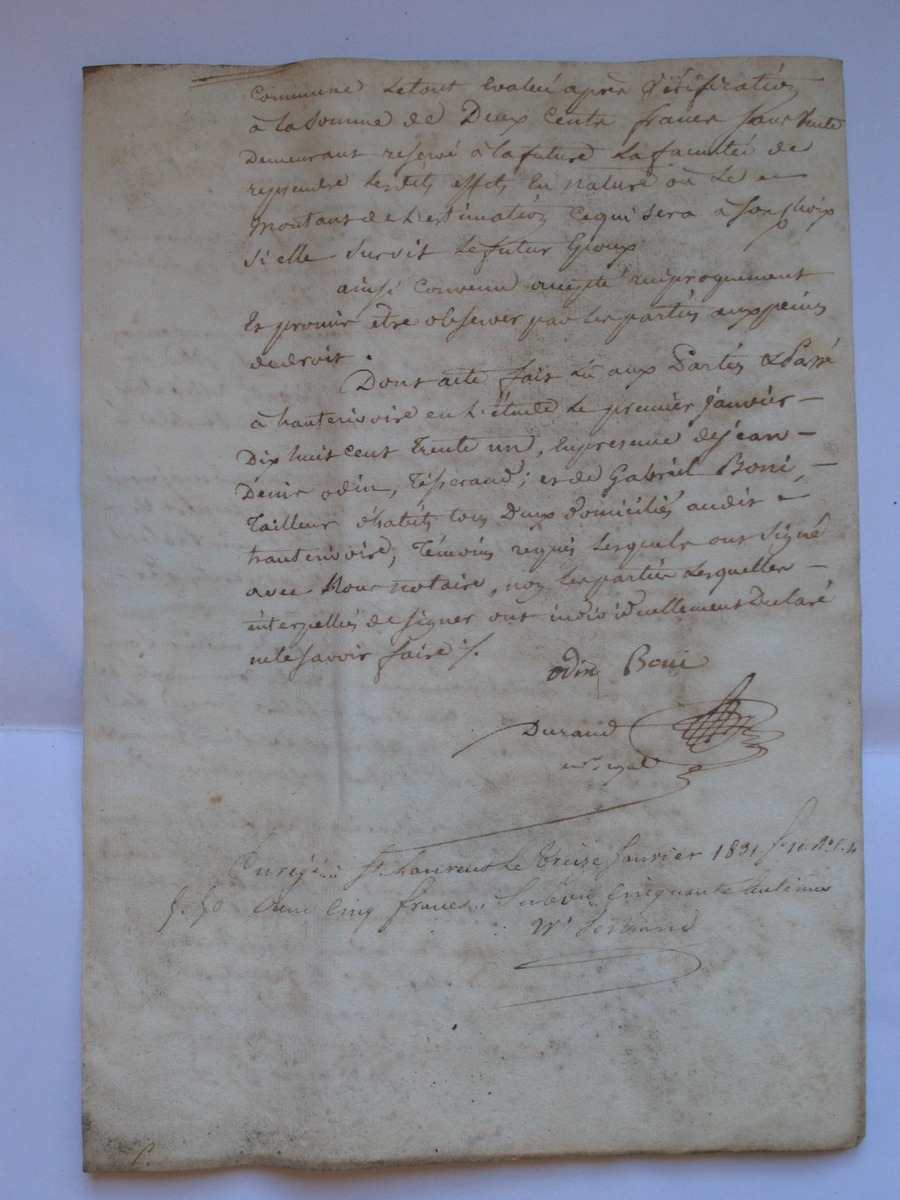 Commune Letout Evalué après Vérification
à la Somme de Deux Cents francs sans vente
Demeurant reservé à la future La faculté de
reprendre lesdits effets En nature où Le
montant de L'estimation Cequi sera à son choix
Si elle Survit Le futur Epoux
ainsi Convenu accepté reciproquement
Et promis être observer par les parties aux peines
de droit.
Dont acte fait Lu aux Parties & Passé
à hauterivoire en L'étude Le premier Janvier
Dix huit cent trente un, En presence de jean
Denis odin, Tisserand; et de Gabriel Boni,
Tailleur d'habits tous Deux domiciliés audit
hauterivoire, Témoins requis Lesquels ont Signé
avec Nous notaire, non les parties Lesquelles
interpellées de Signer ont individuellement Declaré
ne le savoir faire ./.
odin Boni
Durand
Enregé. à St. Laurent Le treize Janvier 1831
5. 50 cinq francs Subvon. Cinquante Centimes